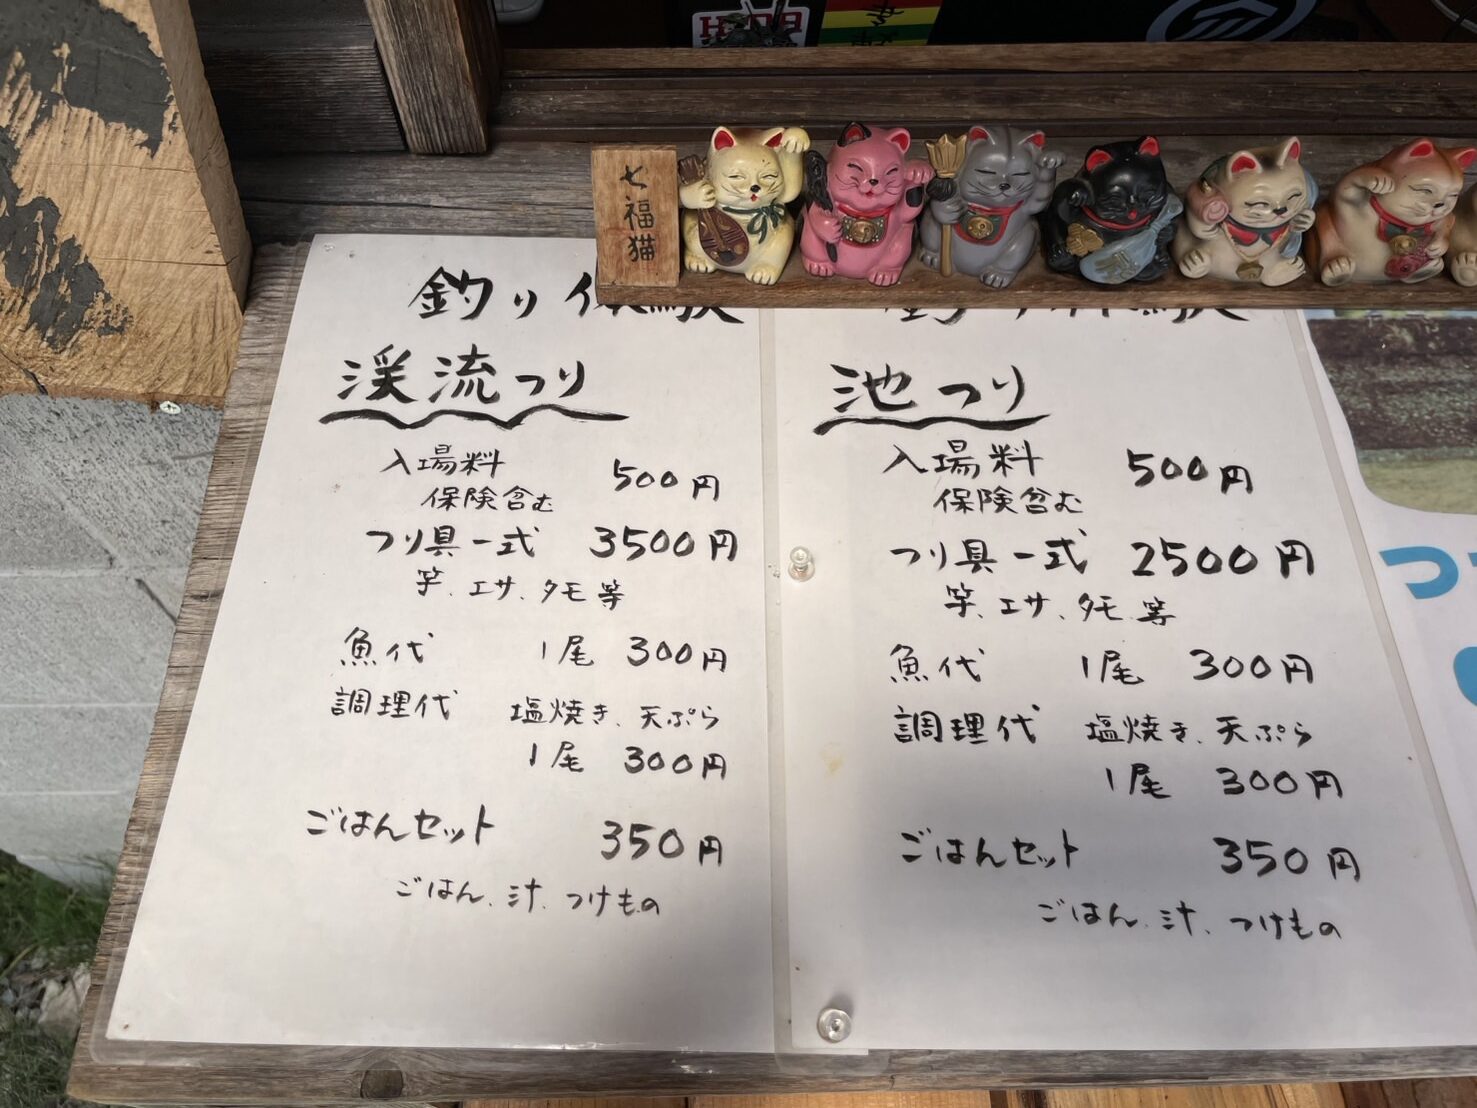 七福猫
釣り体験
渓流つり
入場料 500円
保険含む
つり具一式 3500円
竿、エサ、タモ等
魚代 1尾 300円
調理代 塩焼き、天ぷら
1尾 300円
ごはんセット 350円
ごはん、汁、つけもの
釣り体験
池つり
入場料 500円
保険含む
つり具一式 2500円
竿、エサ、タモ等
魚代 1尾 300円
調理代 塩焼き、天ぷら
1尾 300円
ごはんセット 350円
ごはん、汁、つけもの